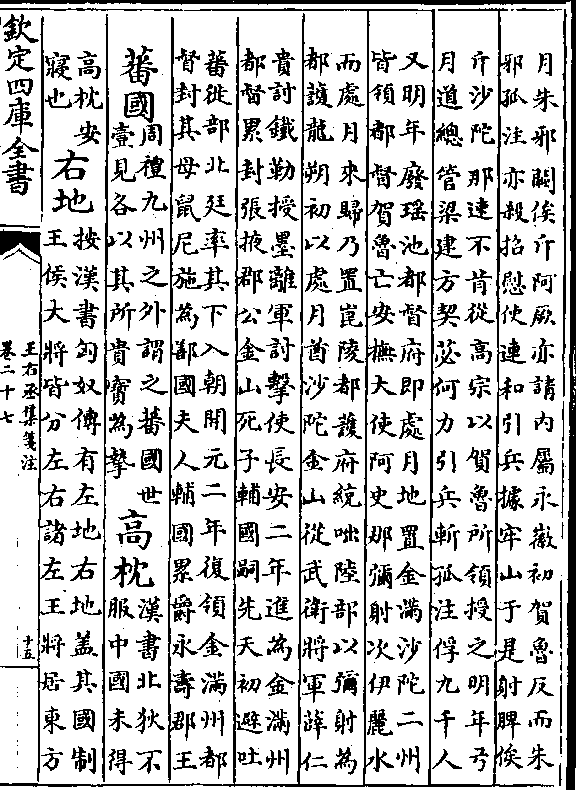 月朱邪闕俟斤阿厥亦請內屬永徽初賀魯反而朱
邪孤注亦殺招慰使連和引兵據牢山于是射脾俟
斤沙陀那速不肯從高宗以賀魯所領授之明年弓
月道總管梁建方契苾何力引兵斬孤注俘九千人
又明年廢瑶池都督府即處月地置金滿沙陀二州
皆領都督賀魯亡安撫大使阿史那彌射次伊麗水
而處月來歸乃置崑陵都護府統咄陸部以彌射為
都護龍朔初以處月酋沙陀金山從武衛將軍薛仁
貴討鐵勒授墨離軍討擊使長安二年進為金滿州
都督累封張掖郡公金山死子輔國嗣先天初避吐
蕃徙部北廷率其下入朝開元二年復領金滿州都
督封其母鼠尼施為鄯國夫人輔國累爵永壽郡王
蕃國
周禮九州之外謂之蕃國世
壹見各以其所貴寳為摯
高枕
漢書北狄不
服中國未得
高枕安
寢也
右地
按漢書匈奴傳有左地右地盖其國制
王侯大將皆分左右諸左王將居東方
欽定四庫全書
王右丞集箋注
卷二十七
十五